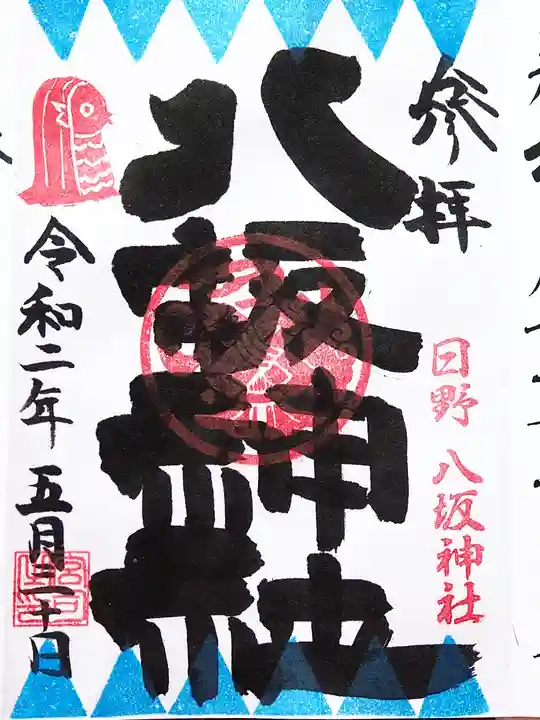 参拝
日野 八坂神社
八坂神社
令和二年 五月二十日